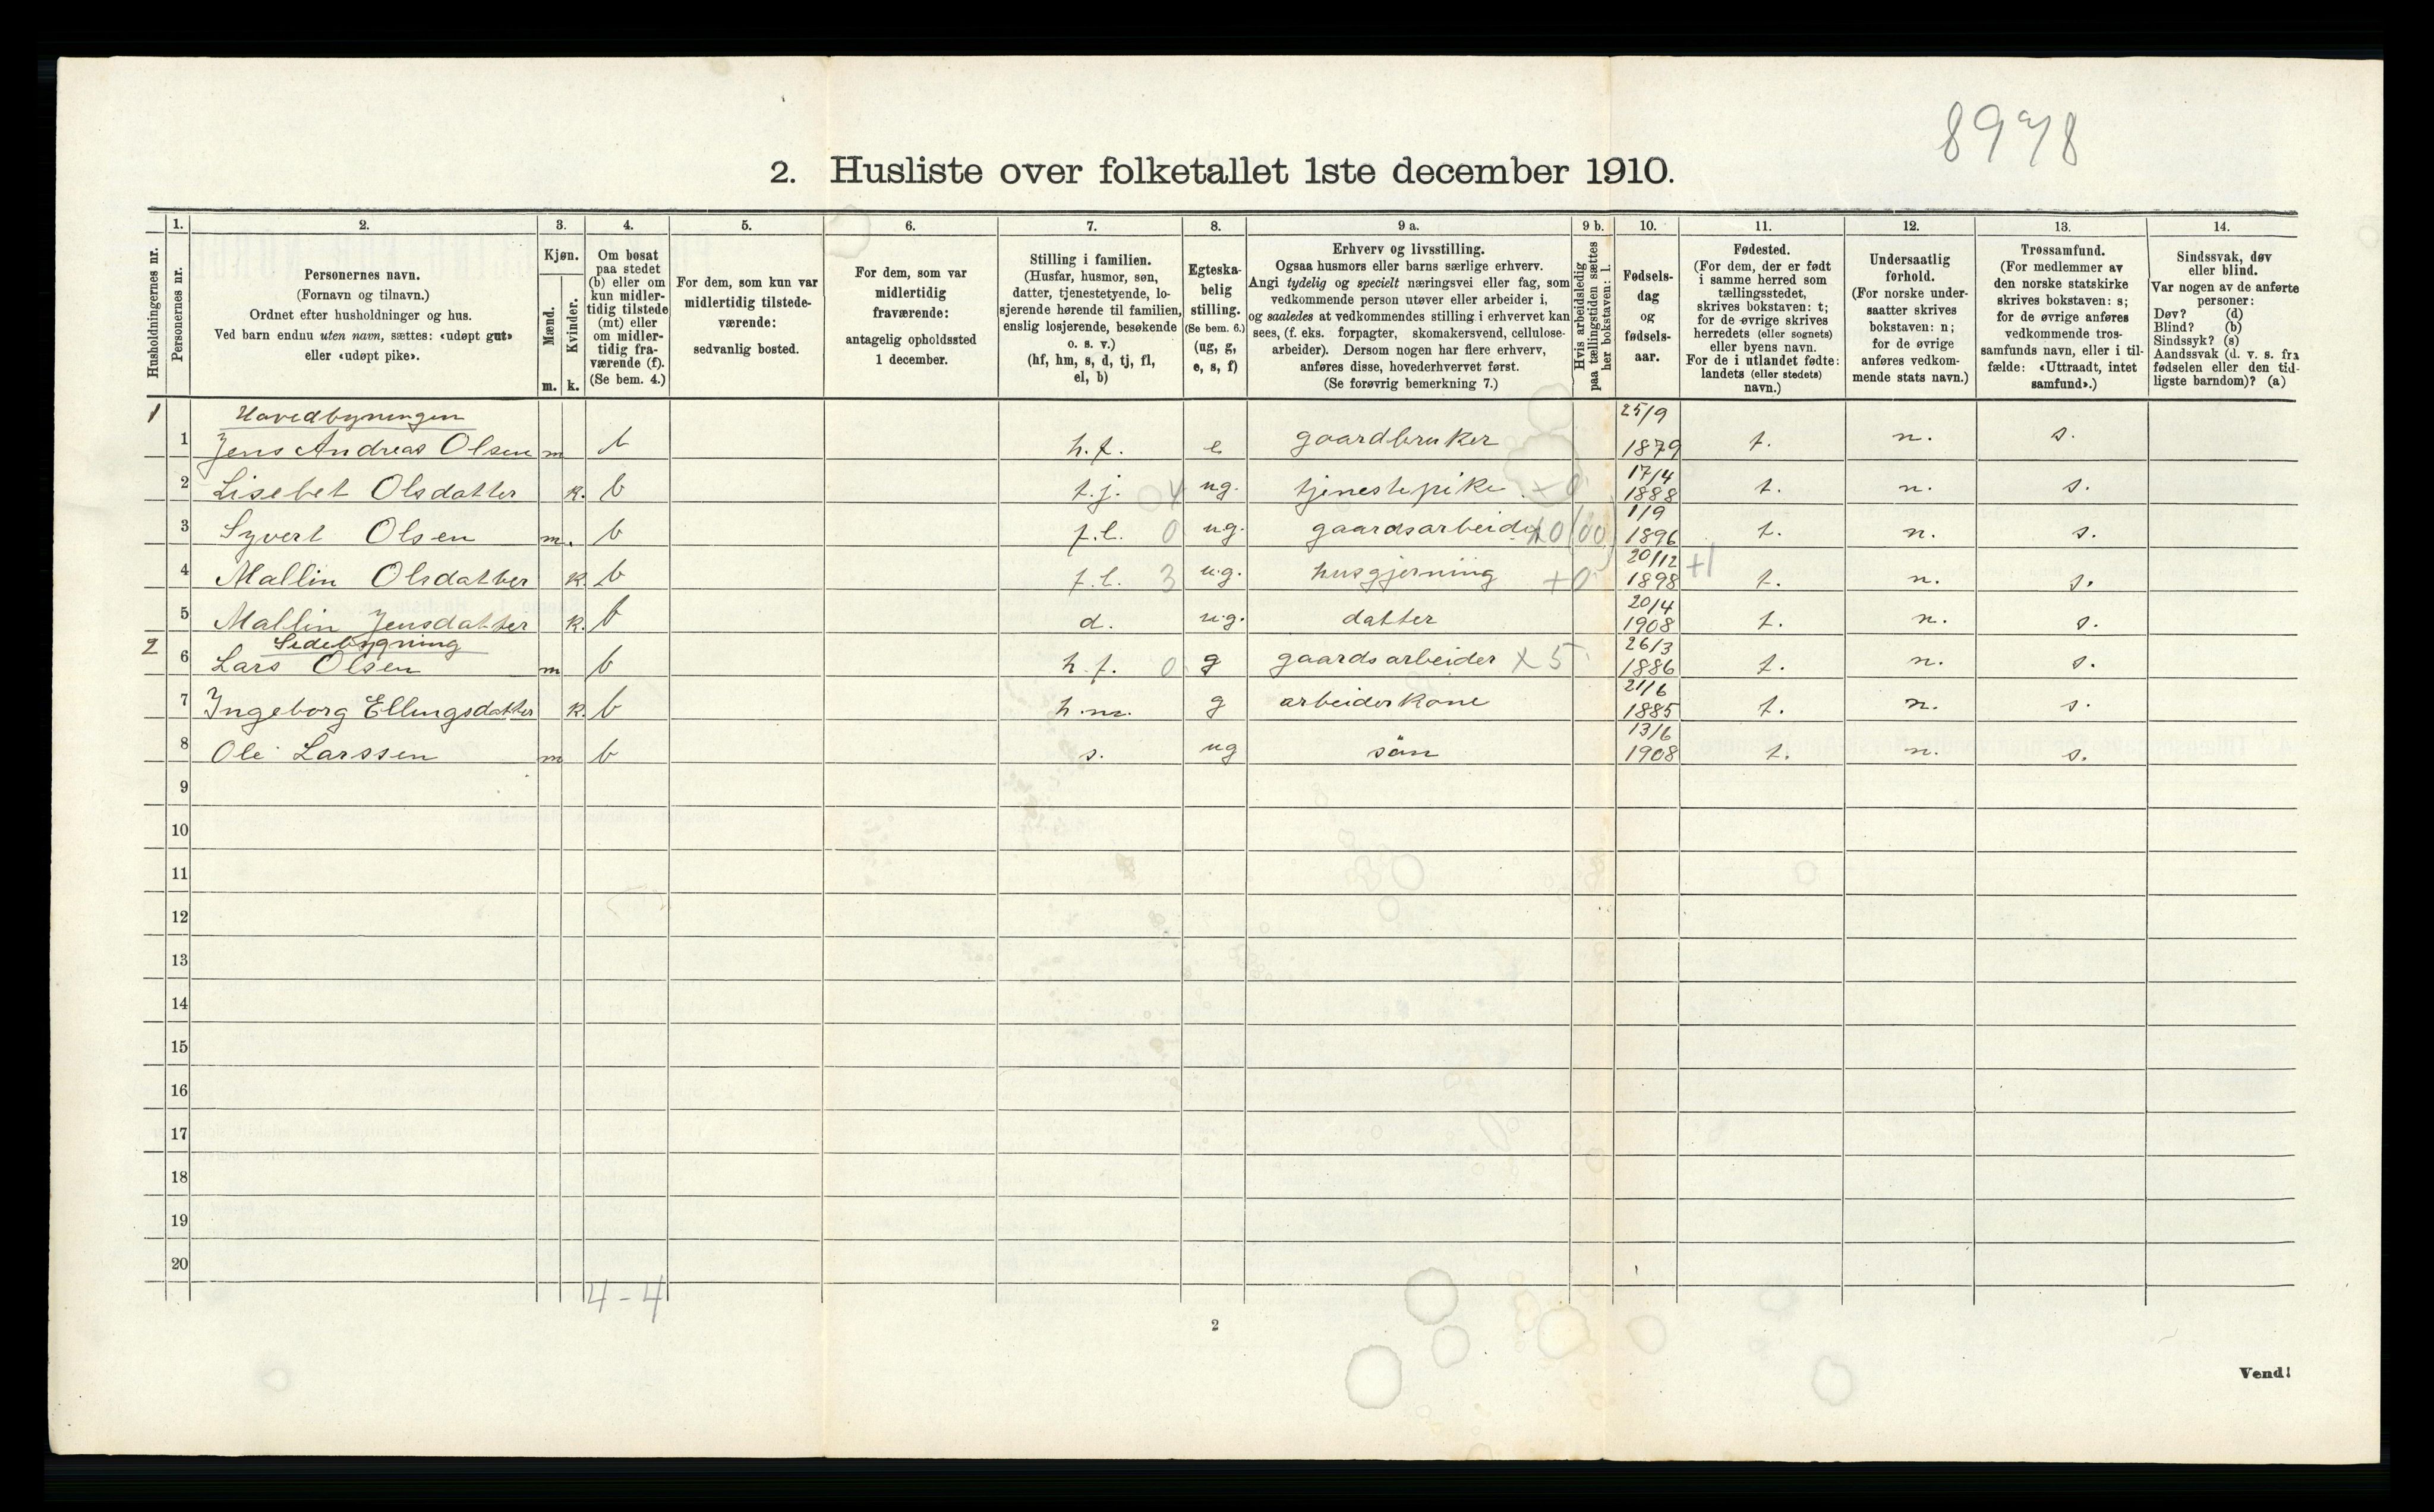 8978
2. Husliste over folketallet 1ste december 1910.
Husholdningernes nr.
1.
Personernes nr.
2.
Personernes navn.
(Fornavn og tilnavn.)
Ordnet efter husholdninger og hus.
Ved barn endnu uten navn, sættes: «udøpt gut»
eller «udøpt pike».
3.
Kjøn.
Mænd.
Kvinder.
m. k.
4.
Om bosat
paa stedet
(b) eller om
kun midler-
tidig tilstede
(mt) eller
om midler-
tidig fra-
værende (f).
(Se bem. 4.)
5.
For dem, som kun var
midlertidig tilstede-
værende:
sedvanlig bosted.
6.
For dem, som var
midlertidig
fraværende:
antagelig opholdssted
1 december.
7.
Stilling i familien.
(Husfar, husmor, søn,
datter, tjenestetyende, lo-
sjerende hørende til familien,
enslig losjerende, besøkende
o. s. v.)
(hf, hm, s, d, tj, fl,
el, b)
8.
Egteska-
belig
stilling.
(Se bem. 6.)
(ug, g,
e, s, f)
9 a.
Erhverv og livsstilling.
Ogsaa husmors eller barns særlige erhverv.
Angi tydelig og specielt næringsvei eller fag, som
vedkommende person utøver eller arbeider i,
og saaledes at vedkommendes stilling i erhvervet kan
sees, (f. eks. forpagter, skomakersvend, cellulose-
arbeider). Dersom nogen har flere erhverv,
anføres disse, hovederhvervet først.
(Se forøvrig bemerkning 7.)
9 b.
Hvis arbeidsledig
paa tællingstiden sættes
her bokstaven: l.
10.
Fødsels-
dag
og
fødsels-
aar.
11.
Fødested.
(For dem, der er født
i samme herred som
tællingsstedet,
skrives bokstaven: t;
for de øvrige skrives
herredets (eller sognets)
eller byens navn.
For de i utlandet fødte:
landets (eller stedets)
navn.)
12.
Undersaatlig
forhold.
(For norske under-
saatter skrives
bokstaven: n;
for de øvrige
anføres vedkom-
mende stats navn.)
13.
Trossamfund.
(For medlemmer av
den norske statskirke
skrives bokstaven: s;
for de øvrige anføres
vedkommende tros-
samfunds navn, eller i til-
fælde: «Uttraadt, intet
samfund».)
14.
Sindssvak, døv
eller blind.
Var nogen av de anførte
personer:
Døv? (d)
Blind? (b)
Sindssyk? (s)
Aandssvak (d. v. s. fra
fødselen eller den tid-
ligste barndom)? (a)
1 Hovedbyningen 25/9
1 Jens Andreas Olsen m b h.f. e gaardbruker 1879 t. n. s.
17/4
2 Lisebet Olsdatter k. b t.j. 04 ug. tjenestepike +0 1888 t. n. s.
1/9
3 Syvert Olsen m. b f.l. 0 ug. gaardsarbeider x0(00) 1896 t. n. s.
20/12
4 Mallin Olsdatter k. b f.l. 3 ug. husgjerning +0 1898 +1 t. n. s.
20/4
5 Mallin Jensdatter k. b d. ug. datter 1908 t. n. s.
2 Sidebygning 26/3
6 Lars Olsen m b h.f. 0 g gaardsarbeider x5 1886 t. n. s.
21/6
7 Ingeborg Ellingsdatter k. b h.m. g arbeiderkone 1885 t. n. s.
13/6
8 Ole Larssen m b s. ug sön 1908 t. n. s.
9
10
11
12
13
14
15
16
17
18
19
20
4-4
2
Vend!